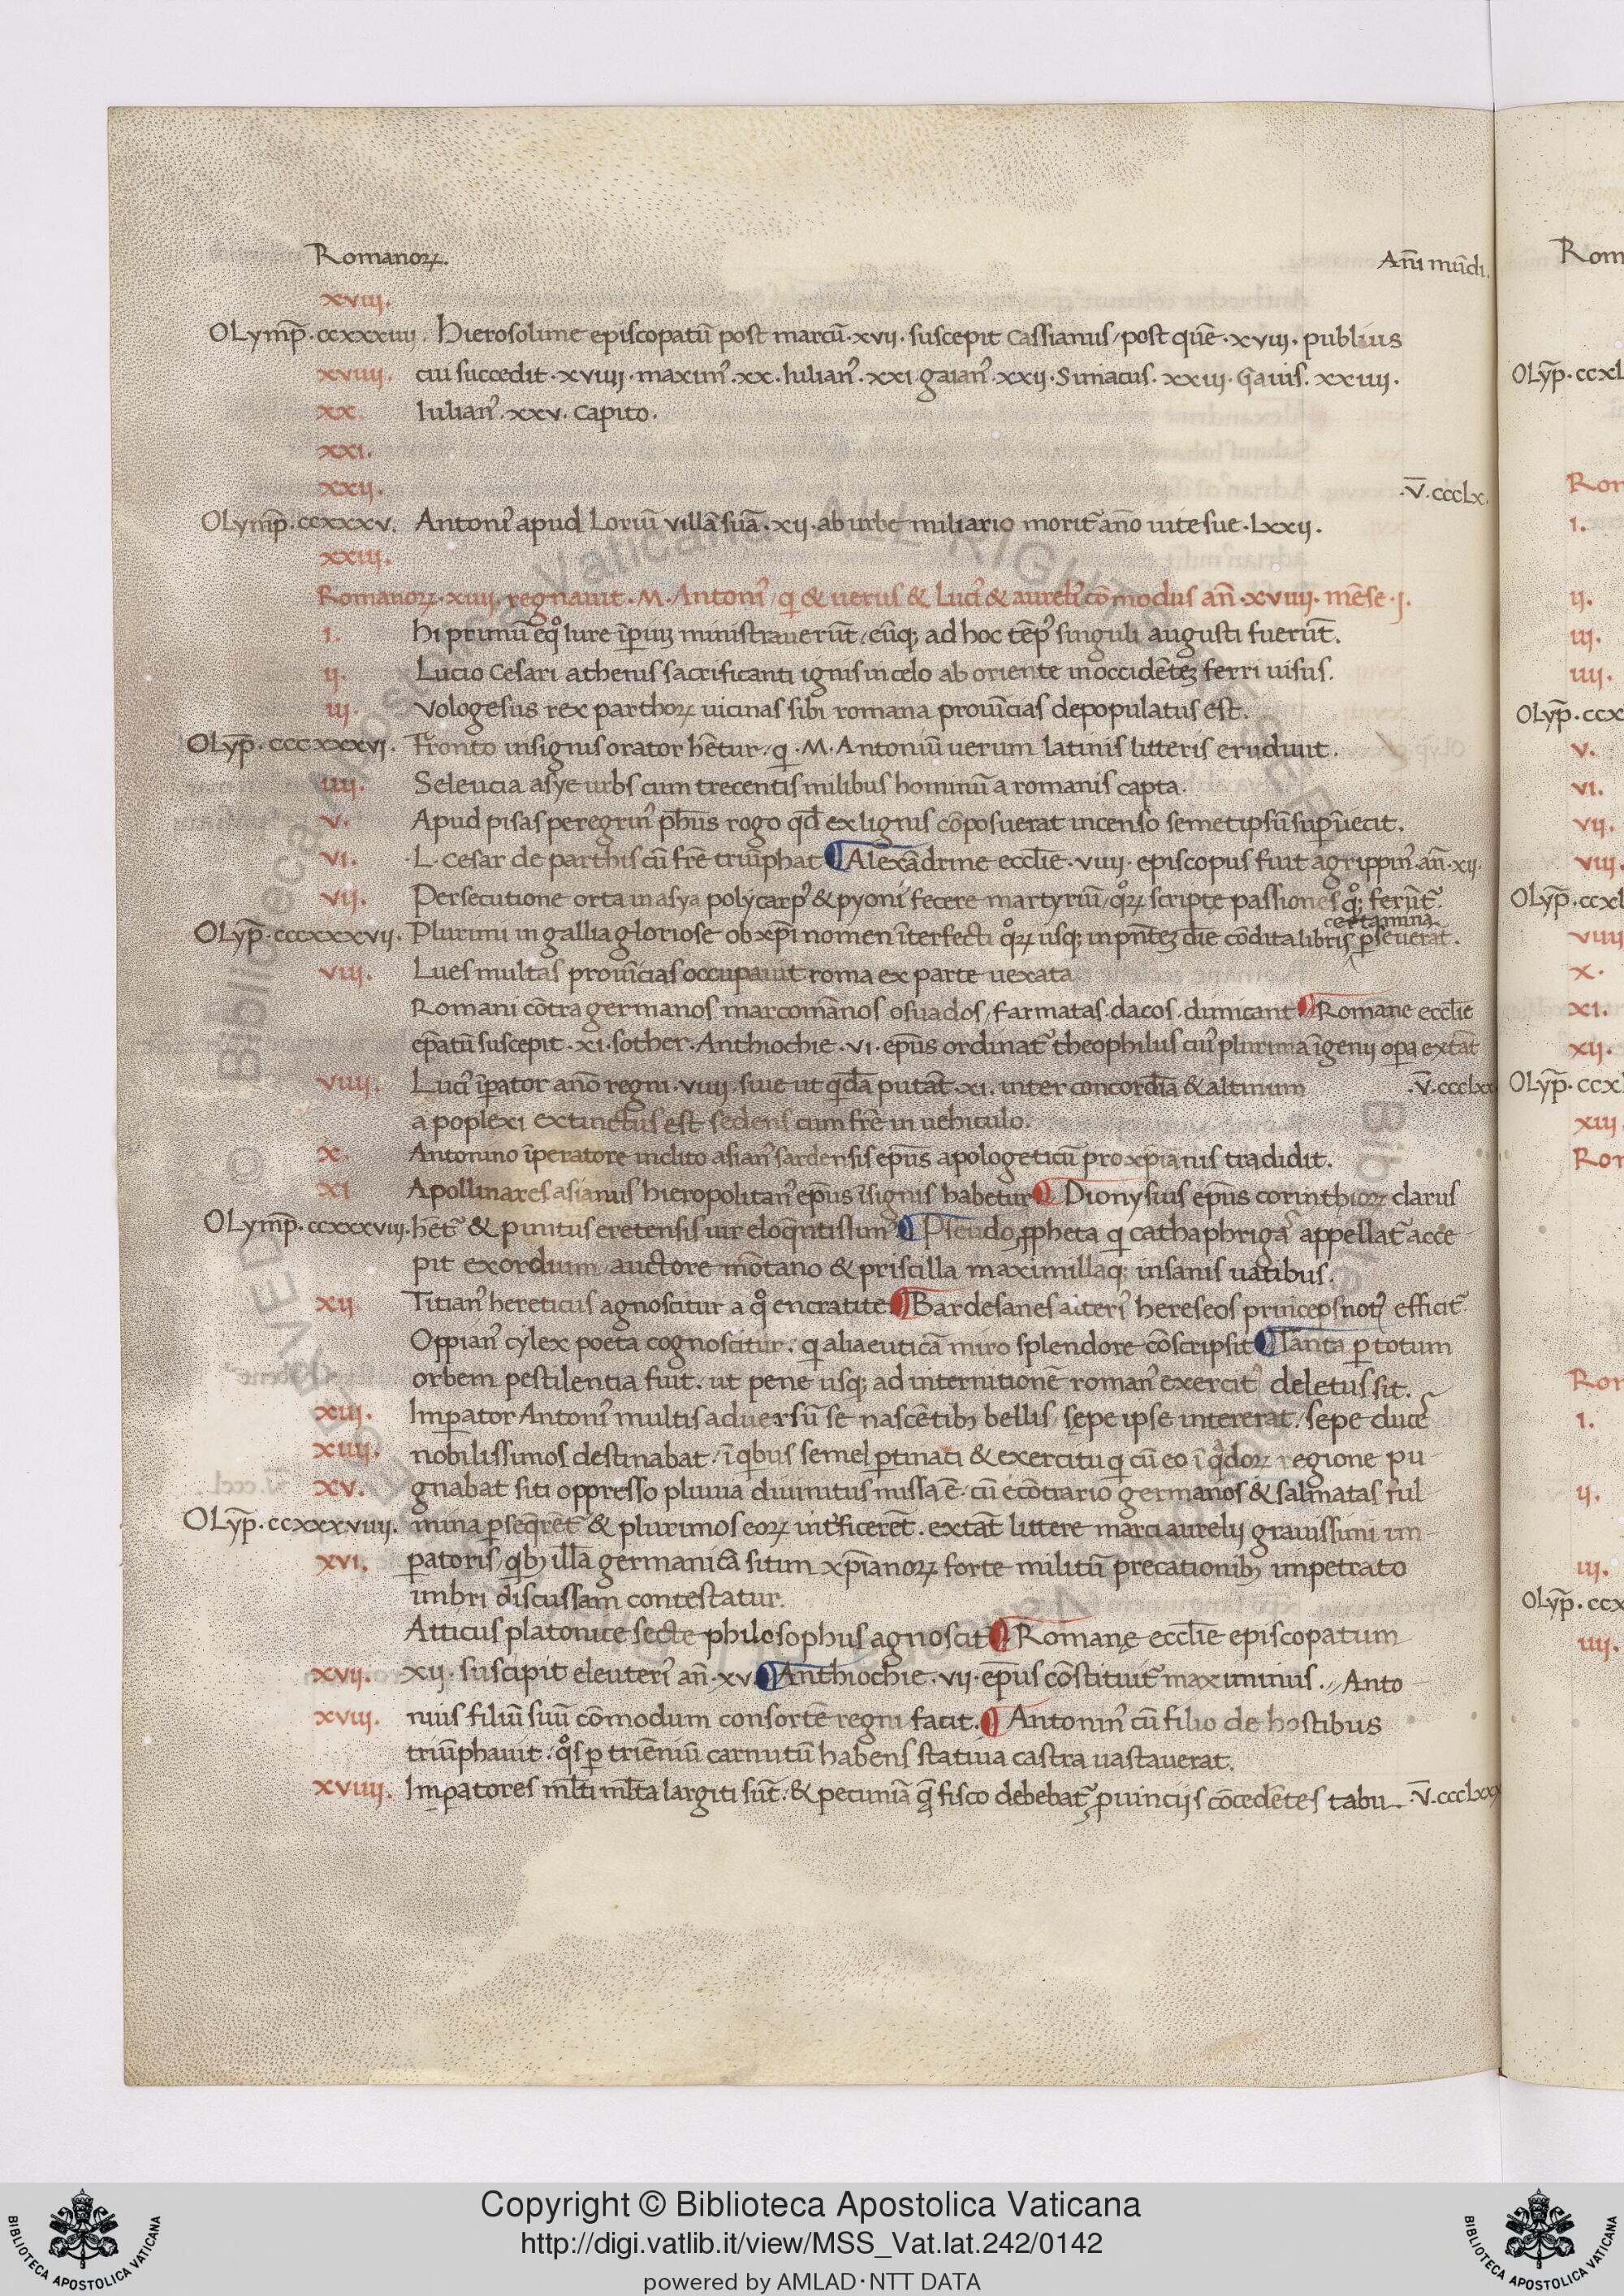 Romanoꝝ.
Añi mūdi.
xviij.
Olymp̄.ccxxxiiij. Hierosolime episcopatū post marcū.xvij. suscepit cassianus/post quē.xviij. publius
xviiij. cui succedit.xviiij.maximꝰ.xx.Iulianꝰ.xxi.gaianꝰ.xxij.Simacus.xxiij.Gaius.xxiiij.
xx. Iulianꝰ.xxv.capito.
xxi.
xxij.
.v̄.ccclx.
Olymp̄.ccxxxv. Antoniꝰ apud Loriū villā suā.xij.ab urbe miliario morit᷑ año uite sue.Lxxij.
xxiij.
Romanoꝝ.xiiij.regnauit.M.Antoniꝰ/q̄ & uerus & Luciꝰ & aureliꝰ cōmodus añ.xviiij.mēse.j.
i. hi primū eq̊ iure īpiuꝫ ministrauerūt/cūqꝫ ad hoc tēpꝰ singuli augusti fuerūt.
ij. Lucio Cesari athenis sacrificanti ignis in celo ab oriente in occidētēꝫ ferri uisus.
iij. Vologesus rex parthoꝝ uicinas sibi romana prouīcias depopulatus est.
Olyp̄.cccxxxvi. Fronto insignis orator hētur/q̄.M.Antoniū uerum latinis litteris erudiuit.
iiij. Seleucia asye urbs cum trecentis milibus hominū a romanis capta.
v. Apud pisas peregrinꝰ ph̄us rogo qd̄ ex lignis cōposuerat incenso semetipsū suꝑiecit.
vi. L.Cesar de parthis cū fr̄e triūphat ¶ Alexādrine eccl̄ie.viiij.episcopus fuit agrippinꝰ.añ.xij.
vij. Persecutione orta in asya polycarpꝰ & pyoni fecere martyriū/qꝝ̊ scripte passiones q̊ꝫ ferūt᷑.
certamina
Olyp̄.cccxxxvij. Plurimi in gallia gloriose ob xp̄i nomen īterfecti qꝝ̊ usqꝫ in pn̄tēꝫ diē cōdita libris ꝑseuerāt.
viij. Lues multas prouīcias occupauit roma ex parte uexata
Romani cōtra germanos marcomānos osuados/farmatas.dacos.dimicant ¶ Romane eccl̄ie
ep̄atū suscepit.xi.sother.Anthiochie.vi.ep̄us ordinat᷑ theophilus cuiꝰ plurima īgenij oꝑa extāt
viiij. Luciꝰ īpator año regni.viiij.siue ut qd̄ā putāt.xi.inter concordiā & altinum
.v̄.ccclxx
a poplexi extinctus est sedens cum fr̄e in uehiculo.
x. Antonino īperatore inclito asianꝰ sardensis ep̄us apologeticū pro xp̄ianis tradidit.
xi Apollinares asianus hieropolitanꝰ ep̄us īsignis habetur ¶ Dionysius ep̄us corinthioꝝ clarus
Olymp̄.ccxxxviij. hēt᷑ & pinitus cretensis uir eloq̄ntissimꝰ ¶ Pseudo ꝓpheta q̄ cathaphriga᷑ appellat᷑ acce
pit exordium/auctore mōtano & priscilla maximillaqꝫ insanis uatibus.
xij Titianꝰ hereticus agnoscitur a q̊ encratite ¶ Bardesanes alteriꝰ hereseos princeps notꝰ efficit᷑
Oppianꝰ cylex poeta cognoscitur/q̄ aliaeuticā miro splendore cōscripsit ¶ Tanta ꝑ totum
orbem pestilentia fuit/ut pene usqꝫ ad internitionē romanꝰ exercitꝰ deletus sit.
xiij. Imꝑator Antoniꝰ multis aduersū se nascētibꝫ bellis/sępe ipse intererat/sepe duce᷑
xiiij. nobilissimos destinabat/ī qibus semel ꝑtinaci & exercitu q̄ cū eo ī q̊doꝝ regione pu
xv. gnabat siti oppresso pluuia diuinitus missa ē. cū ecōtrario germanos & salmatas ful
Olyp̄.ccxxxviiij. mina ꝑseq̄rēt᷑ & plurimos eoꝝ int᷑ficerēt. extāt littere marci aurelij grauissimi im
xvi. ꝑatoris/qibꝫ illā germanicā sitim xp̄ianoꝝ forte militū precationibꝫ impetrato
imbri discussam contestatur.
Atticus platonice secte philosophus agnoscit᷑ ¶ Romanę eccl̄ie episcopatum
xvij. xij.suscipit eleuteriꝰ añ.xv. ¶ Anthiochie.vij.ep̄us cōstituit᷑ maximinus.// Anto
xviij. nius filiū suū cōmodum consortē regni facit. ¶ Antoninꝰ cū filio de hostibus
triūphauit/q̊s ꝑ triēniū carnutū habens statiua castra uastauerat.
xviiij. Imꝑatores ml̄ti ml̄ta largiti sūt/& pecuniā q̄ fisco debebat᷑ ꝓuincijs cōcedētes tabu
.v̄.ccclxxx
Copyright © Biblioteca Apostolica Vaticana
http://digi.vatlib.it/view/MSS_Vat.lat.242/0142
powered by AMLAD·NTT DATA
BIBLIOTECA APOSTOLICA VATICANA
BIBLIOTECA APOSTOLICA VATICANA